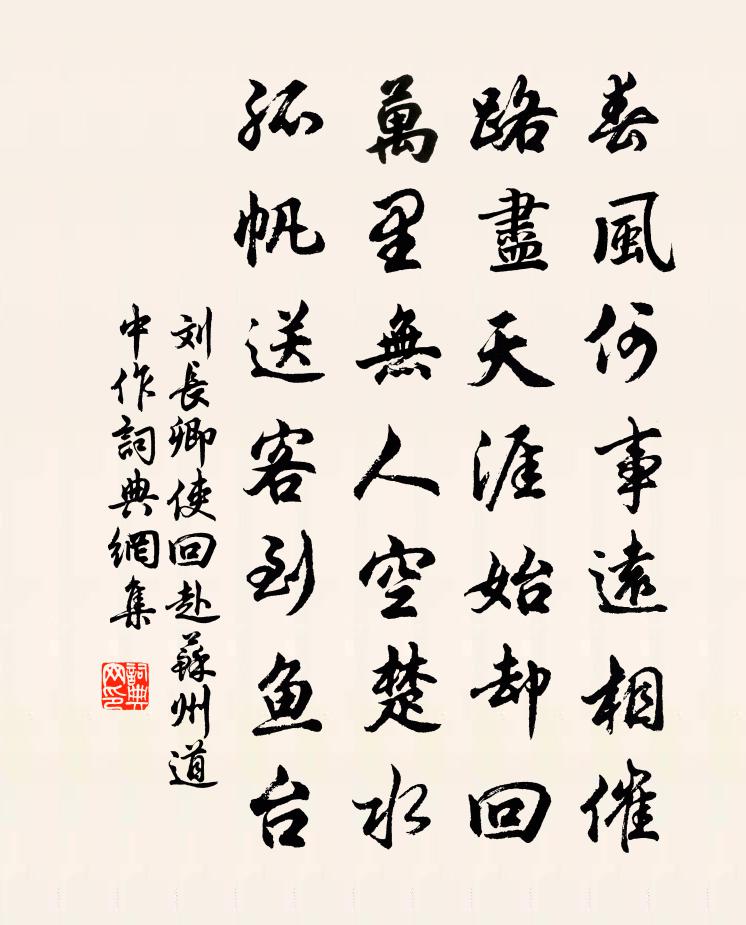 春風何事遠相催
路盡天涯始却回
萬里無人空楚水
孤帆送客到鱼台
刘長卿使回赴蘇州道
中作詞典網集
詞典
网印